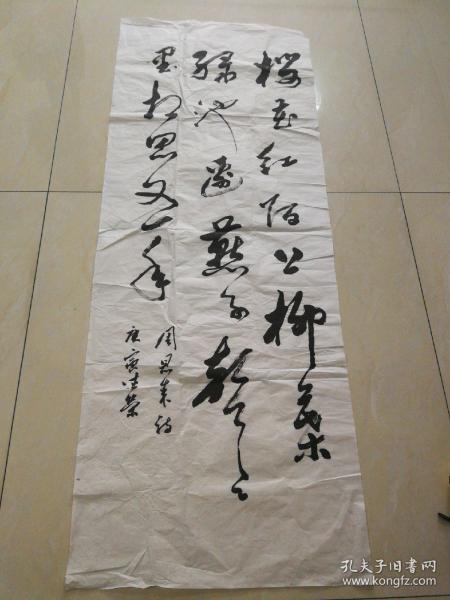 樱花红陌上柳叶
绿池边燕子声声
里相思又一年
周恩来诗
庚寅
孔夫子旧书网
www.kongfz.com